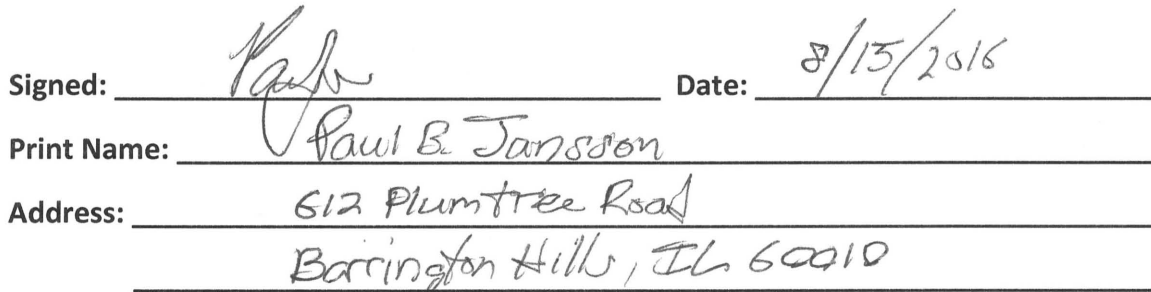 Signed: Date: 8/15/2016
Print Name: Paul B. Jansson
Address: 612 Plumtree Road
Barrington Hills, IL 60010